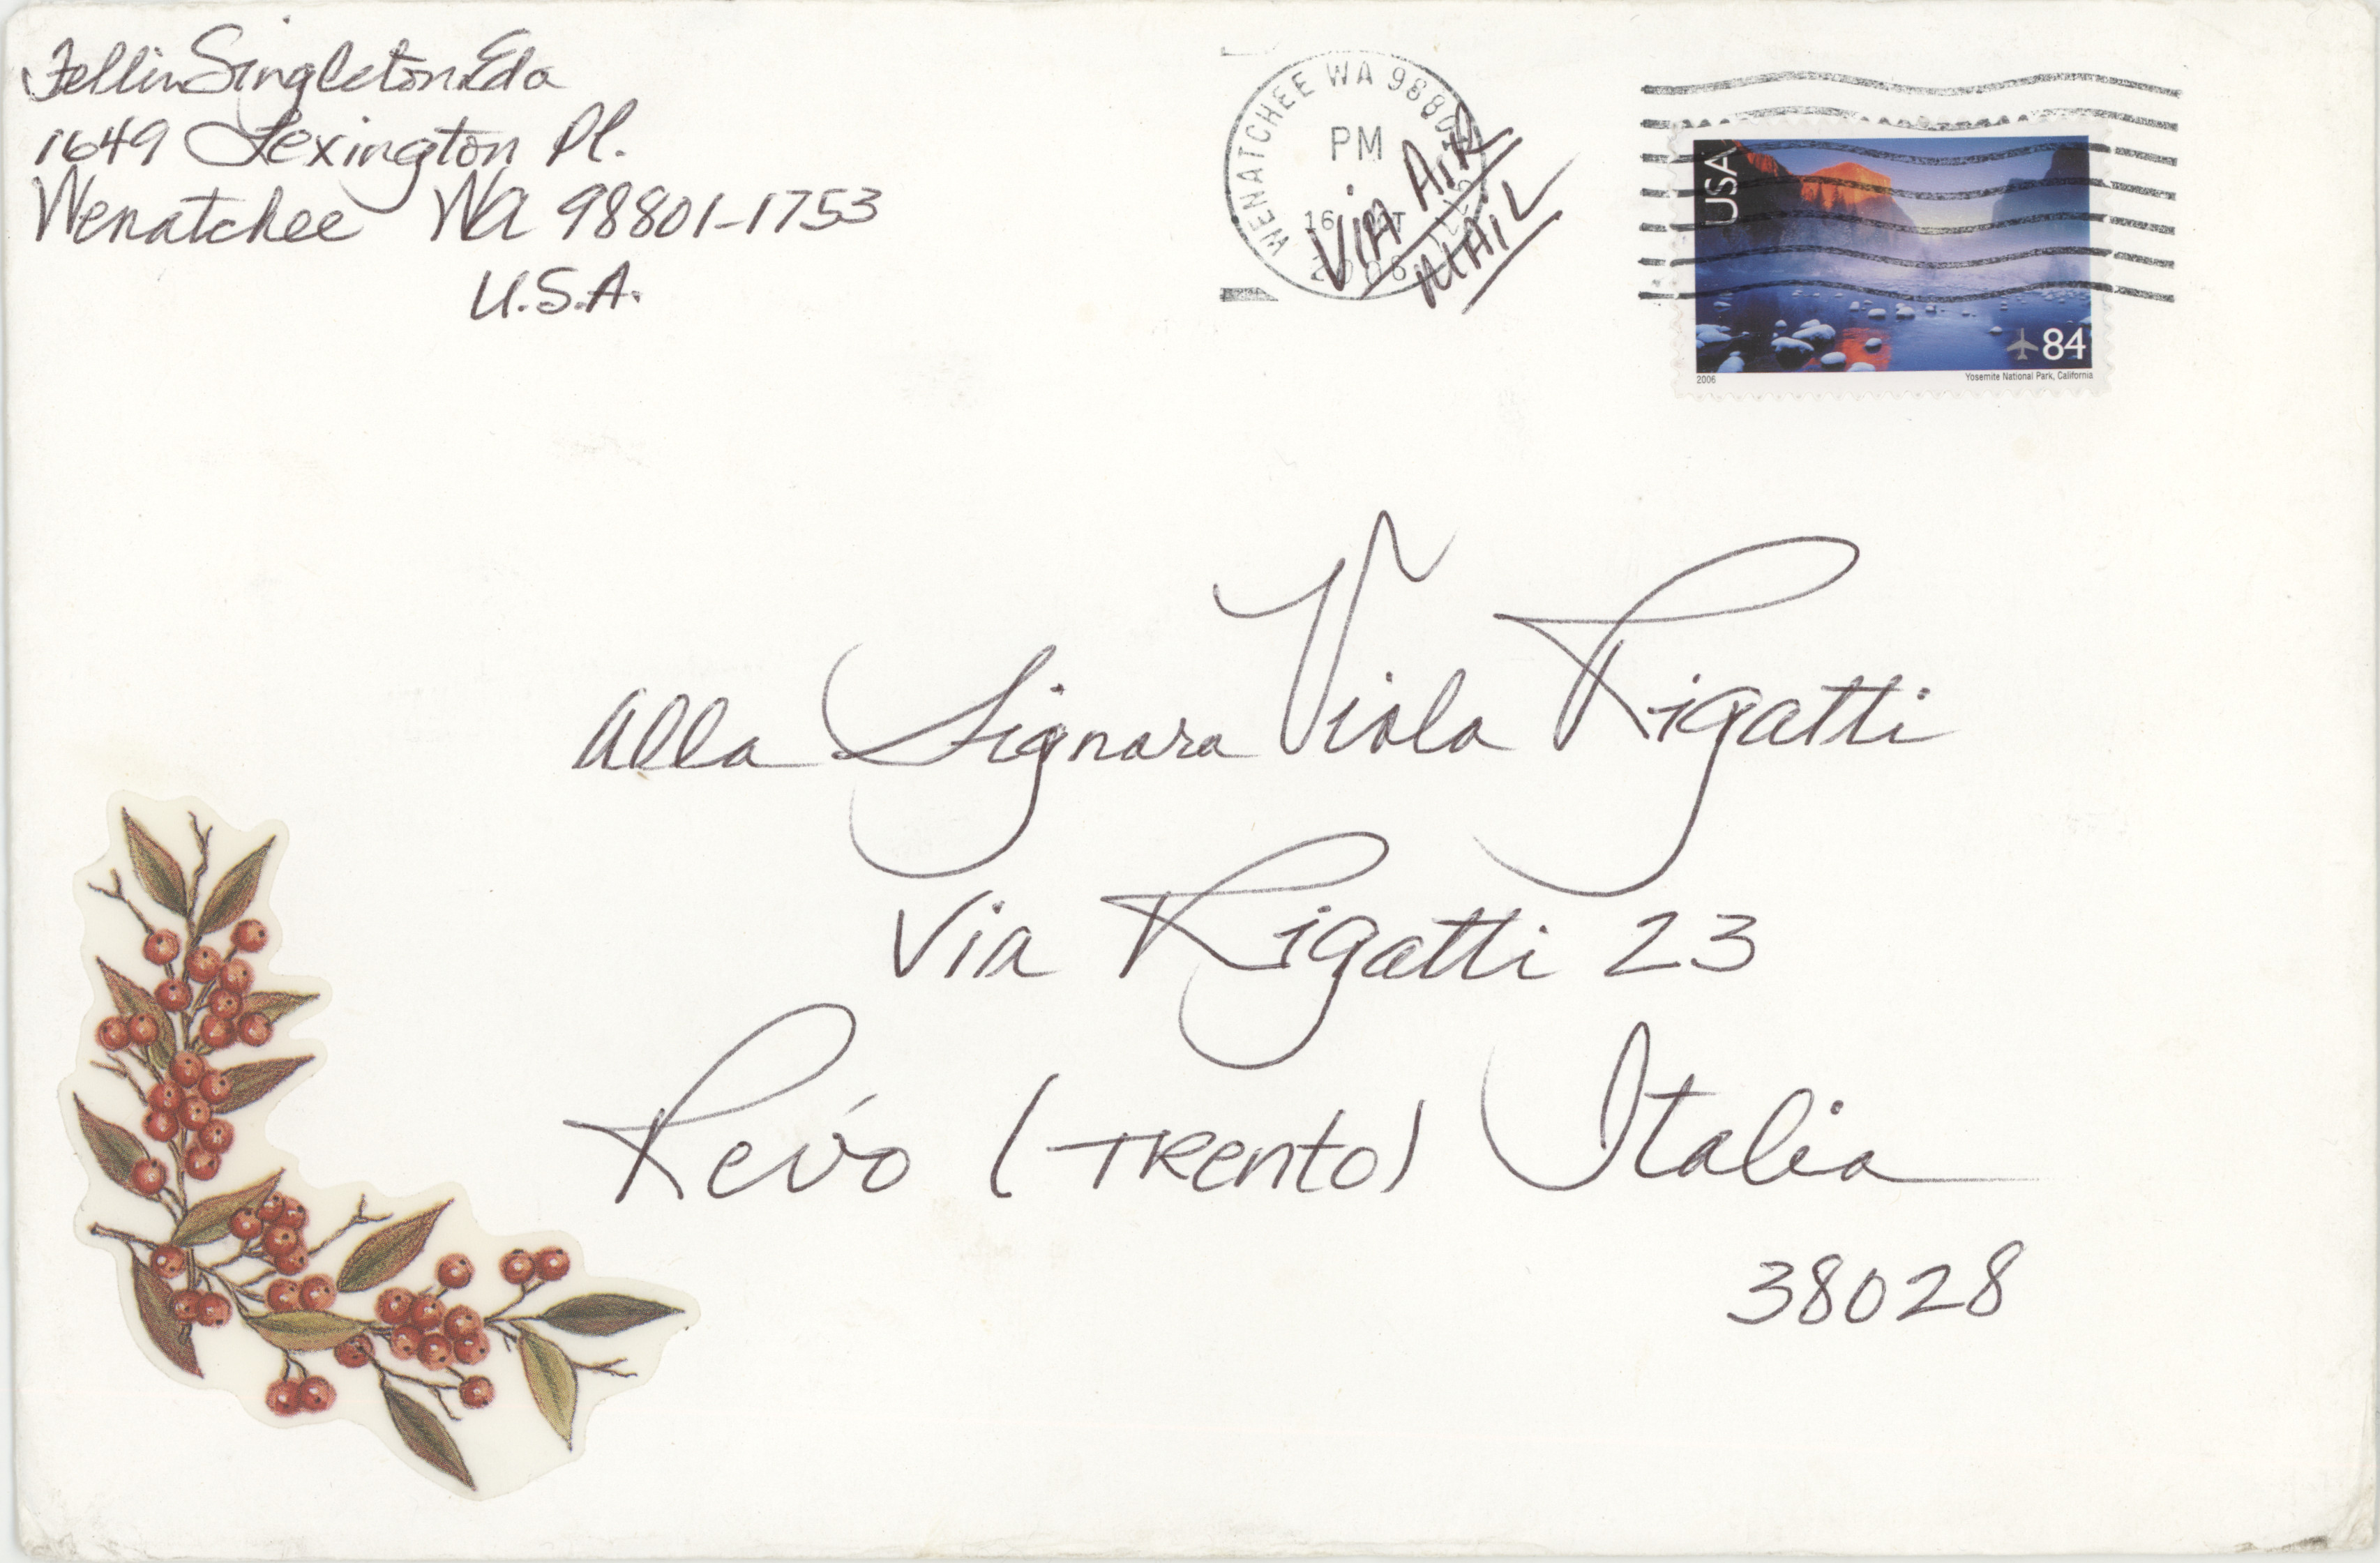 Fellin Singleton Eda
1649 Lexington Pl.
Wenatchee Wa 98801-1753
U.S.A.
WENATCHEE WA 9880
PM
16
2006
VIA AIR
MAIL
USA
84
2006
Yosemite National Park, California
Alla Signora Viola Rigatti
Via Rigatti 23
Revó (TRento) Italia
38028